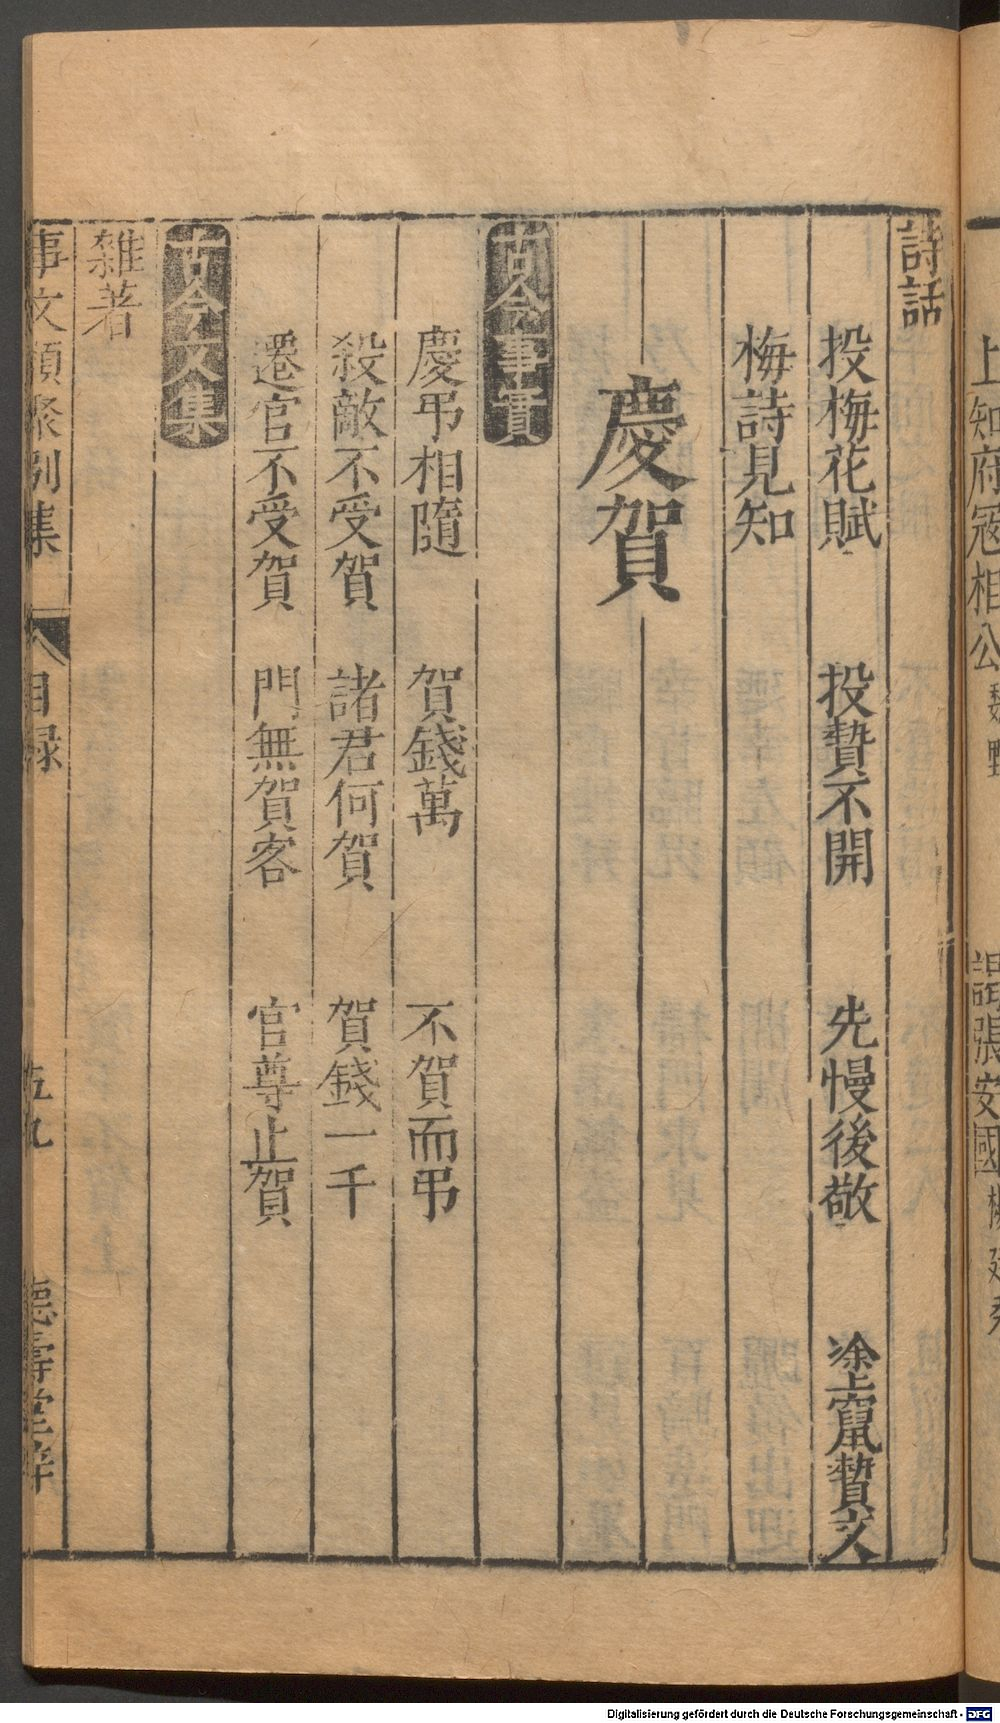 上知府寇相公 魏野
謁張安國
詩話
投梅花賦 投贄不開 先慢後敬 塗竄贄文
梅詩見知
慶賀
古今事實
慶弔相隨 賀錢萬 不賀而弔
殺敵不受賀 諸君何賀 賀錢一千
遷官不受賀 門無賀客 官尊止賀
古今文集
雜著
事文類聚別集 目録 五九 德壽堂梓
Digitalisierung gefördert durch die Deutsche Forschungsgemeinschaft - DFG